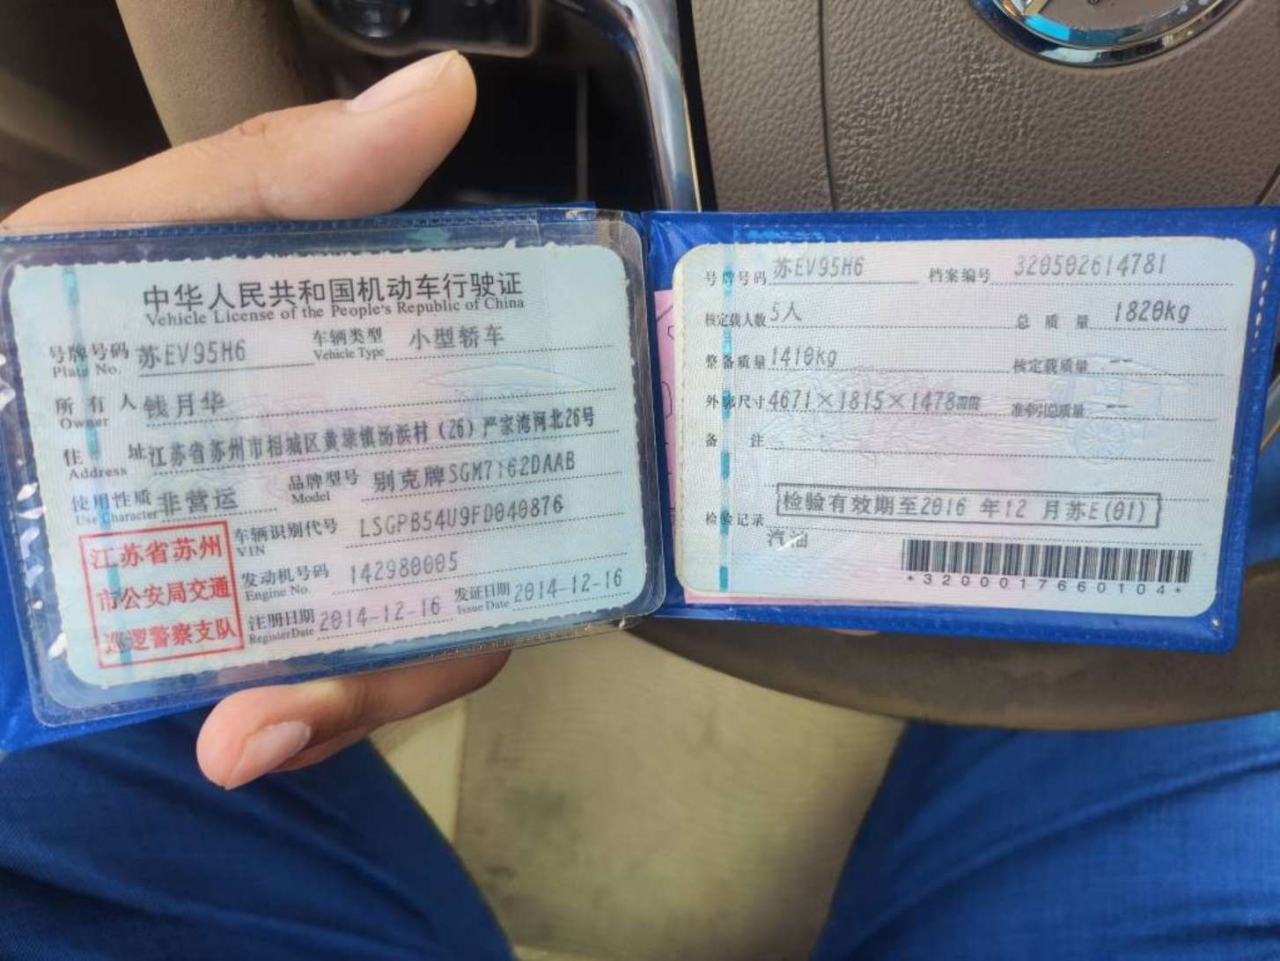 中华人民共和国机动车行驶证
Vehicle License of the People's Republic of China
号牌号码 苏EV95H6 车辆类型 小型轿车
Plate No. Vehicle Type
所有人 钱月华
Owner
住址 江苏省苏州市相城区黄埭镇汤浜村（26）严家湾河北26号
Address
使用性质 非营运 品牌型号 别克牌SGM7162DAAB
Use Character Model
江苏省苏州
市公安局交通
巡逻警察支队
车辆识别代号 LSGPB54U9FD040876
VIN
发动机号码 142980005
Engine No.
注册日期 2014-12-16 发证日期 2014-12-16
Register Date Issue Date
号牌号码 苏EV95H6 档案编号 320502614781
核定载人数 5人 总质量 1820kg
整备质量 1410kg 核定载质量 --
外廓尺寸 4671×1815×1478mm 准牵引总质量 --
备注
检验有效期至2016 年12 月苏E(01)
检验记录
汽油
*3200017660104*